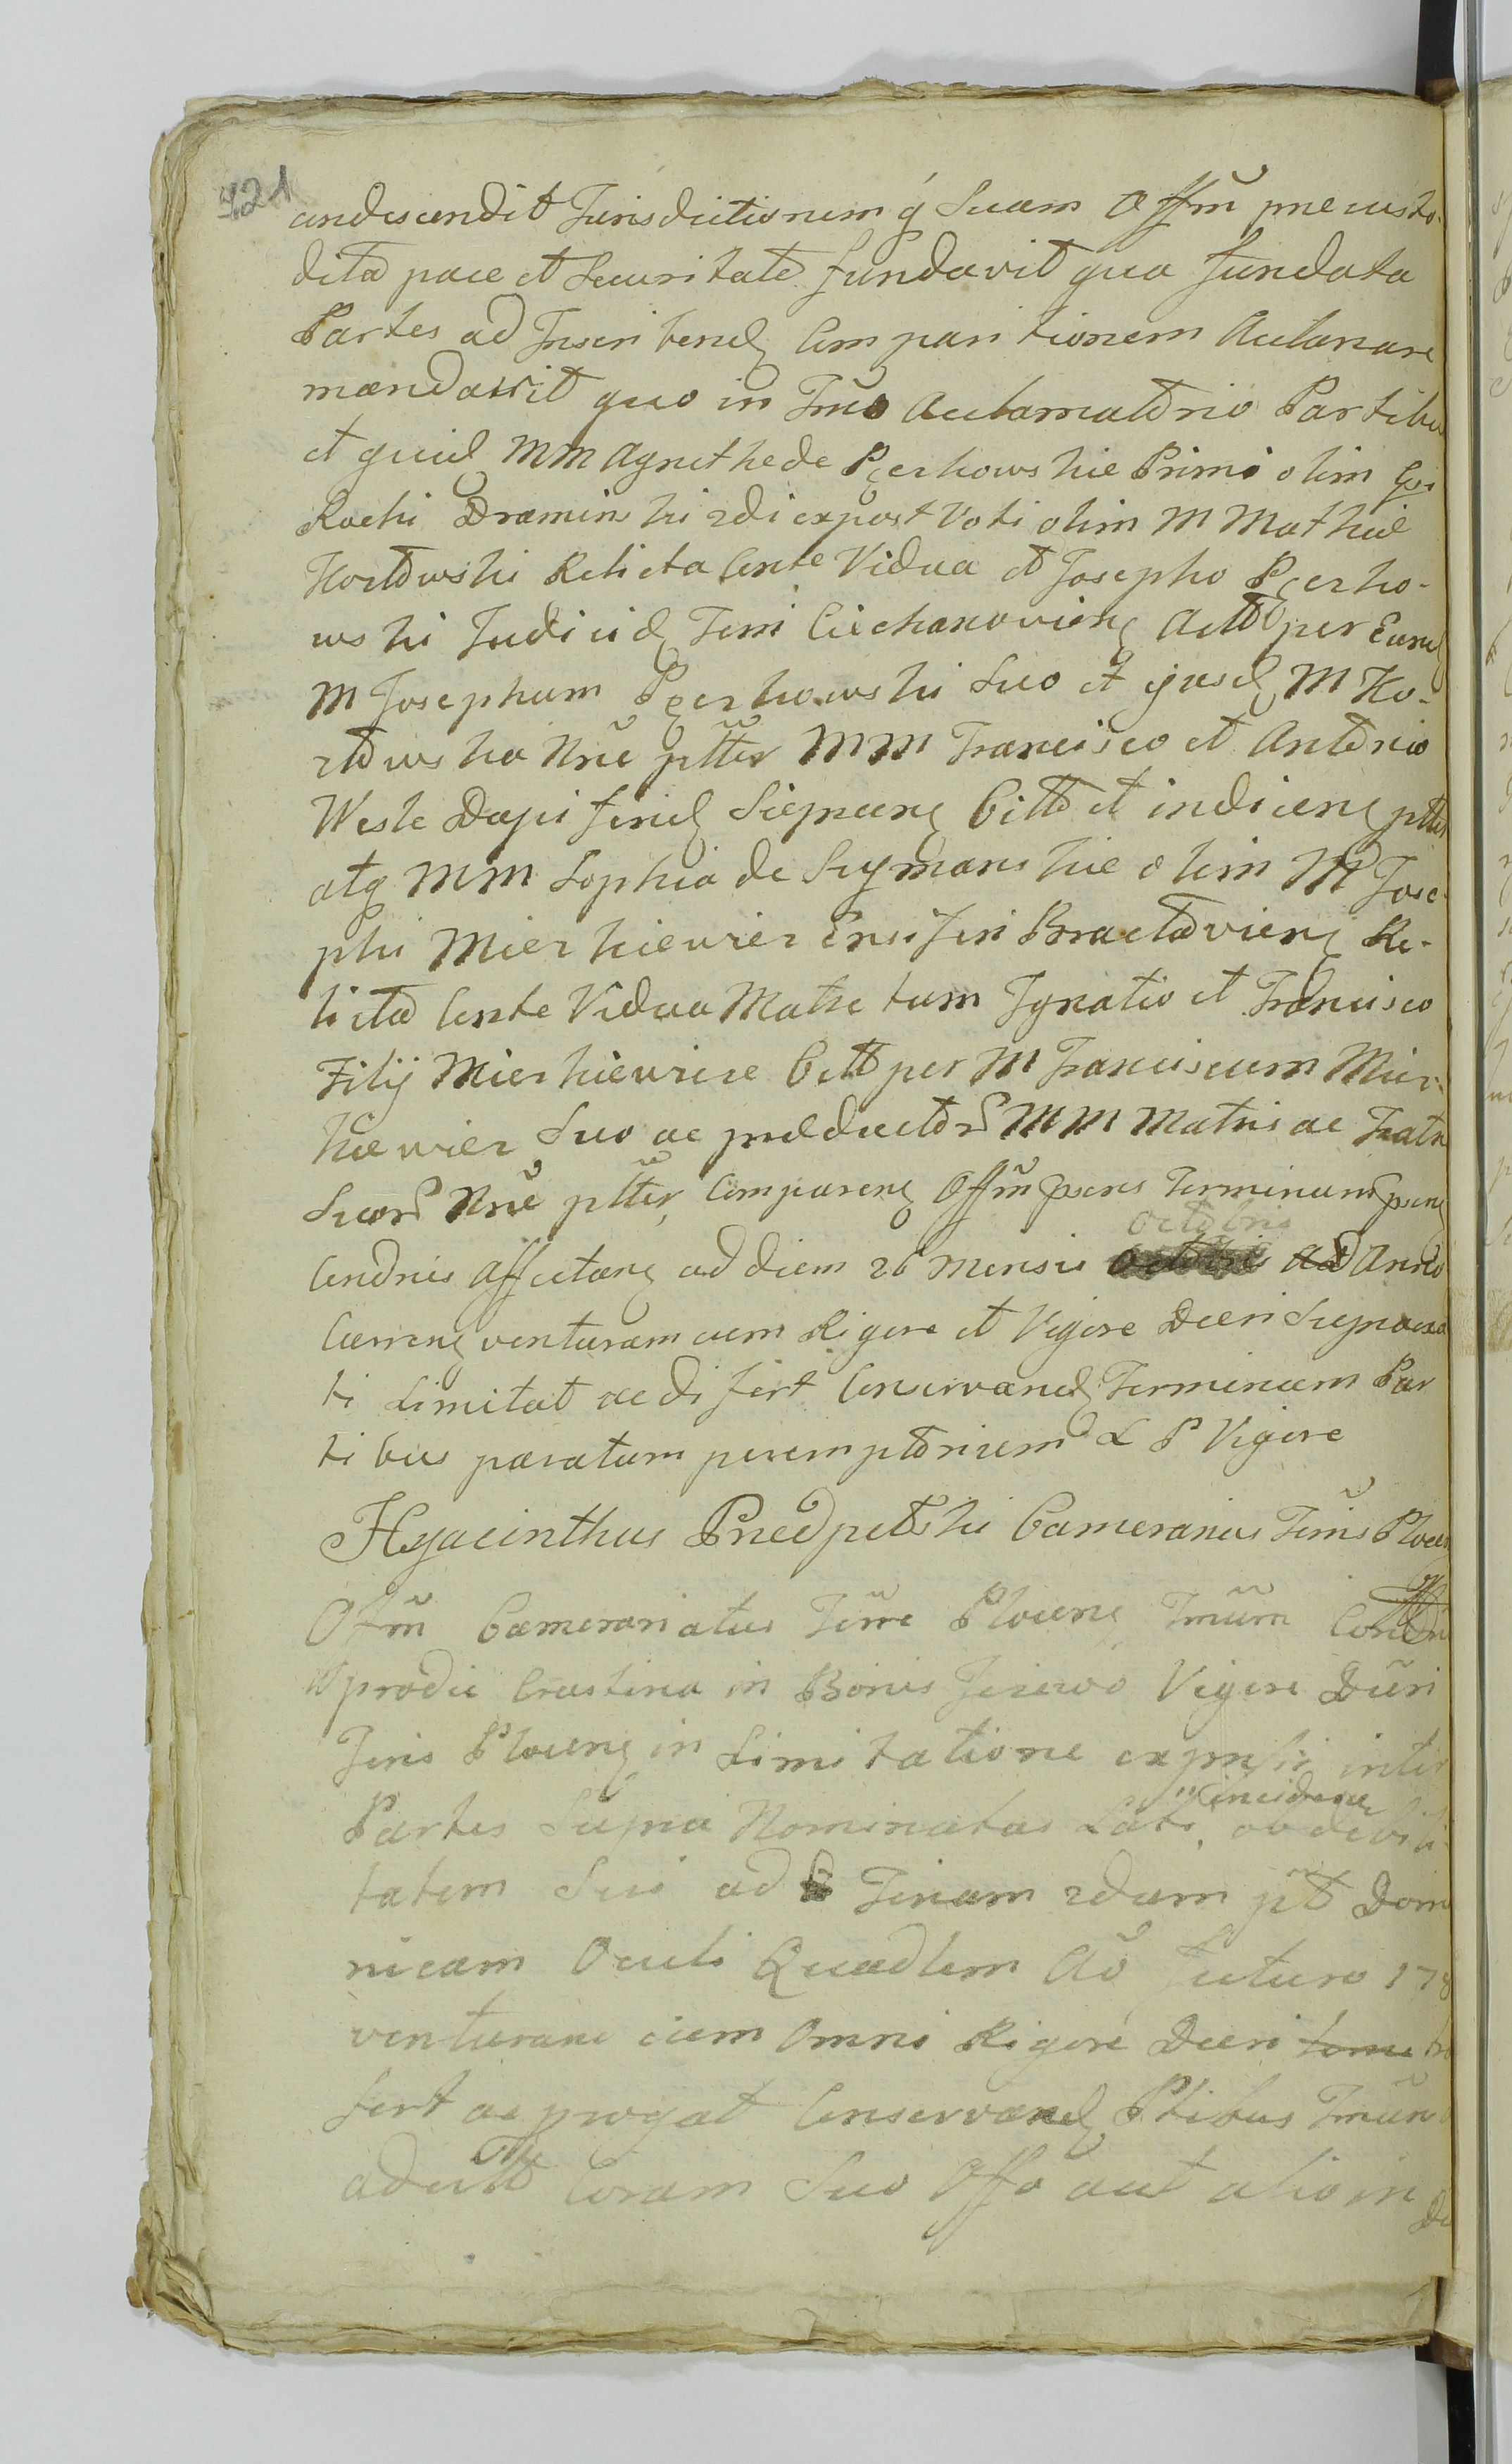 421
andescendit Jurisdictionem q́ Suam Offm̃ praecusto-
dita pace et Securitate fundavit qua fundata
Partes ad Inscribend Comparitionem Acclamare
mandavit quo in Tm̃o Acclamatorio Partibus
et quid MM Agnethe de Pęerhowskie Primi olim
Rochi Dramin̄ski 2di expost Voti olim M Mathiae
Kortowski Relicta Conte Vidua et Josepho Pęerho-
wski Judicid Terrae Ciechanovien Actt per Eund
M Josephum Pęerhowski Suo et ejusd M Ko-
rtowska Nrĩe ptter MM Francisco et Antonio
Wesle Dapiferid Sieprcen Citt et indicen ptter
atq MM Sophia de Szymanskie olim M Jose-
phi Mierhiewicz Ensiferi Bractavien Re-
licta Conte Vidua Matre tum Ignatio et Francisco
Filij Mierhiewicze Citt per M Franciscum Mier-
hiewicz Suo ac praeductor MM Matris ac Fratr
Suor Nrĩe ptter, Comparen Offm̃ psens Terminum psen
Condnis Affectan ad diem 26 Mensis Octobris Anno
Curren venturam cum Rigore et Vigore Dccri Supraexa
ti Limitat ac difert Conservand Terminum Par
tibus paratum peremptorium L P Vigore
Hyacinthus Przedpetski Camerarius Terris Plocen
Ofm̃ Camerariatus Terrae Plocen Tm̃um Condni
prodie Crastina in Bonis Jezewo Vigore Dccri
Terris Plocen in Limitatione expressi inter
Partes Supra Nominatas Lati, incidenc ob debili
tatem Sui ad Feriam 2dam pt Domi
nicam Oculi Quadlem Ao futuro 178
venturam cum Omni Rigore Dccri
fert ac progat Conservand Ptibus Tm̃um
ad Coram Suo Offo aut alio in
De